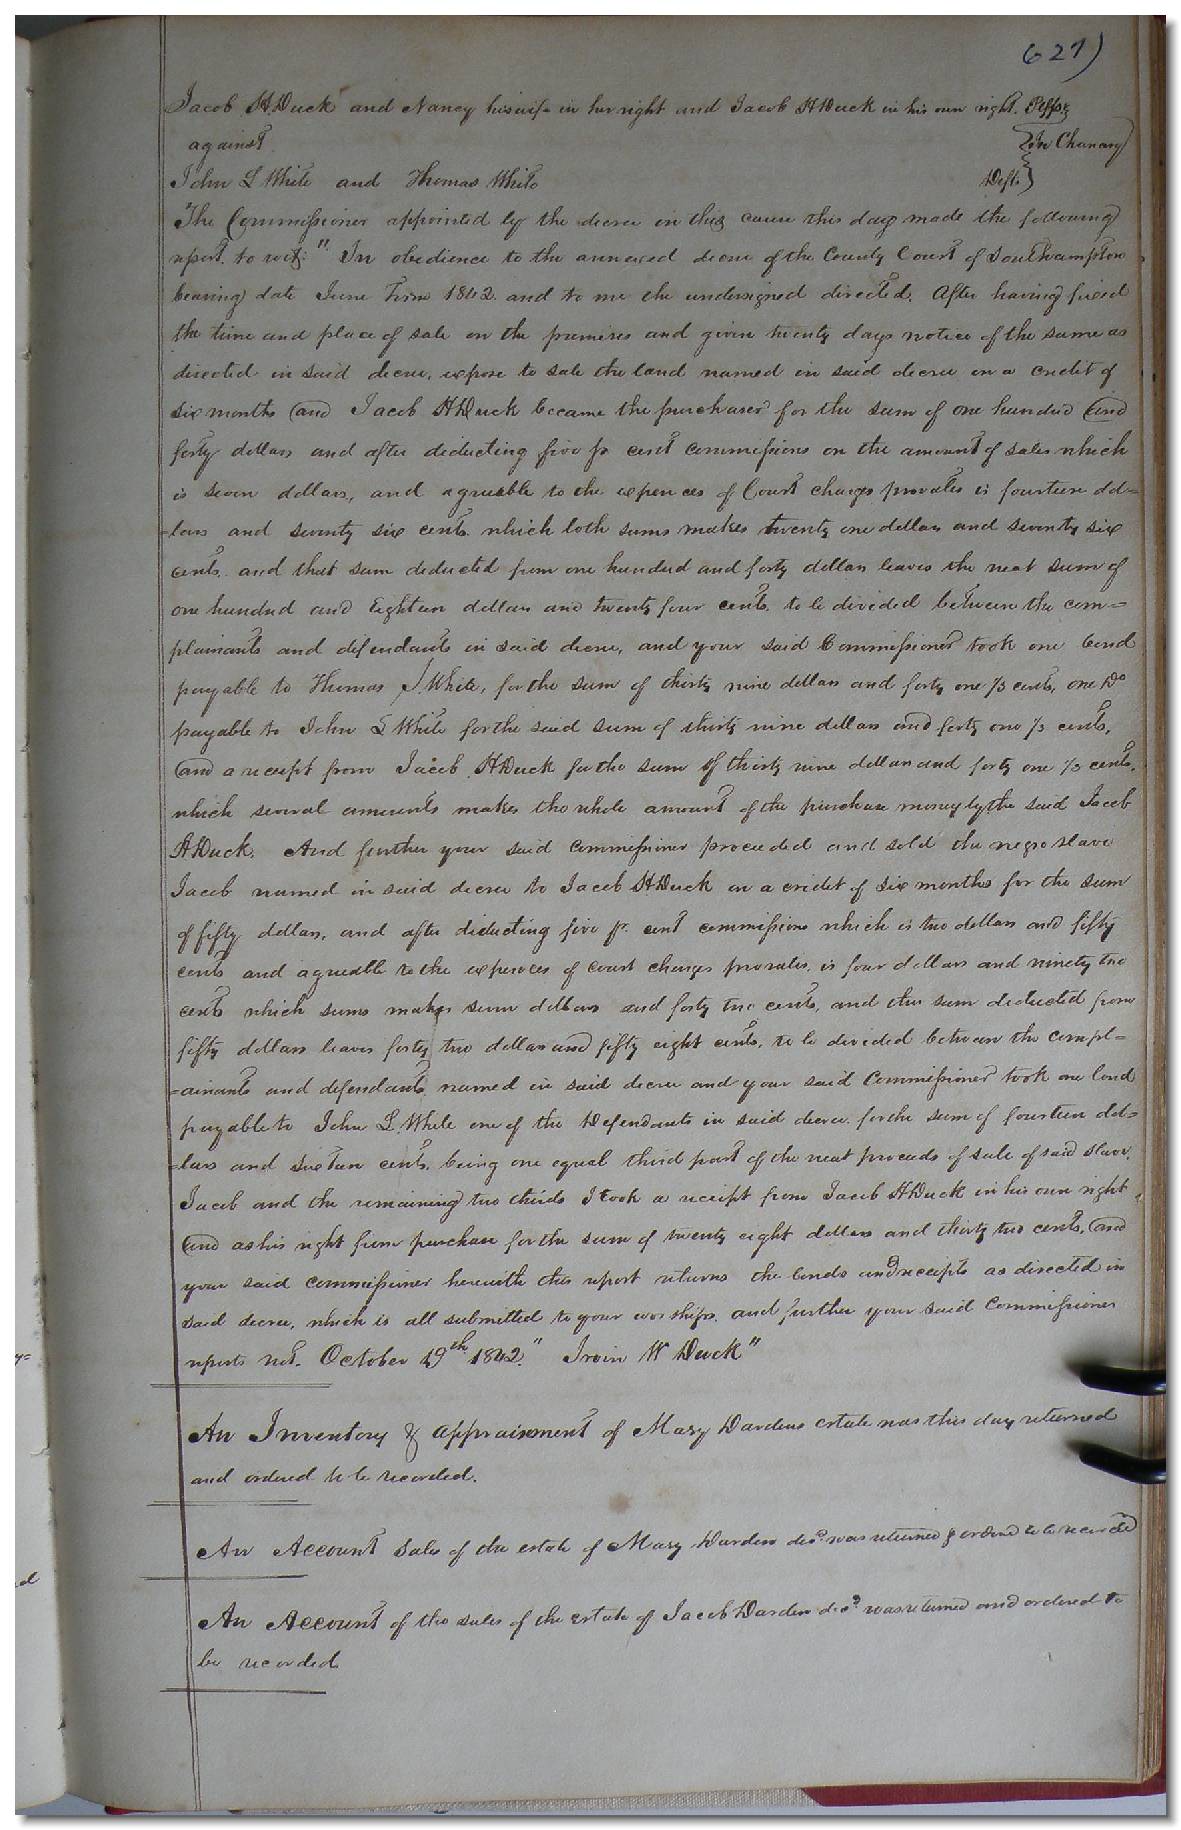 627)
Jacob H Duck and Nancy his wife in her right and Jacob H Duck in his own right. Plffs.
against In Chancery
John L White and Thomas White Defts.
The Commissioner appointed by the decree in this cause this day made the following
report. to wit: " In obedience to the annexed decree of the County Court of Southampton
bearing date June Term 1842. and to me the undersigned directed. After having fixed
the time and place of sale on the premises and given twenty days notice of the same as
directed in said decree, expose to sale the land named in said decree on a credit of
six months and Jacob H Duck became the purchaser for the sum of one hundred and
forty dollars and after deducting five pr cent commissions on the amount of sales which
is seven dollars, and agreable to the expences of Court charges prorates is fourteen dol=
=lars and seventy six cents. which both sums makes twenty one dollars and seventy six
cents. and that sum deducted from one hundred and forty dollars leaves the neat sum of
one hundred and Eighteen dollars and twenty four cents, to be divided between the com=
plainants and defendants in said decree, and your said Commissioner took one bond
payable to Thomas J. White, for the sum of thirty nine dollars and forty one 1/3 cents, one Do
payable to John L White for the said sum of thirty nine dollars and forty one 1/3 cents,
and a receipt from Jacob H Duck for the sum of thirty nine dollars and forty one 1/3 cents.
which several amounts makes the whole amount of the purchase money by the said Jacob
H Duck. And further your said commissioner proceeded and sold the negro slave
Jacob named in said decree to Jacob H Duck on a credit of six months for the sum
of fifty dollars, and after deducting five pr. cent commissions which is two dollars and fifty
cents and agreable to the expences of court charges prorates. is four dollars and ninety two
cents which sums makes seven dollars and forty two cents, and this sum deducted from
fifty dollars leaves forty two dollars and fifty eight cents, to be divided between the compl=
=ainants and defendants named in said decree and your said Commissioner took one bond
payable to John L. White one of the Defendants in said decree. for the sum of fourteen dol=
=lars and sixteen cents. being one equal third part of the neat proceeds of sale of said slave.
Jacob and the remaining two thirds I took a receipt from Jacob H Duck in his own right
and as his right from purchase for the sum of twenty eight dollars and thirty two cents, and
your said commissioner herewith this report returns the bonds and receipts as directed in
said decree, which is all submitted to your worships. and further your said Commissioner
reports not. October 19th 1842." Irvin W Duck"
An Inventory & appraisement of Mary Dardens estate was this day returned
and ordered to be recorded.
An Account Sales of the estate of Mary Darden decd. was returned & ordered to be recorded
An Account of the sales of the estate of Jacob Darden decd. was returned and ordered to
be recorded